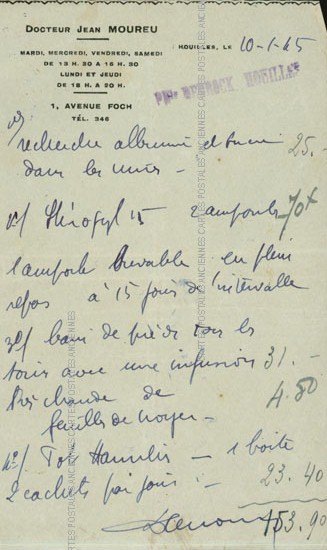 DOCTEUR JEAN MOUREU
MARDI, MERCREDI, VENDREDI, SAMEDI
DE 13 H. 30 A 15 H. 30
LUNDI ET JEUDI
DE 18 H. A 20 H.
1, AVENUE FOCH
TÉL. 346
HOUILLES, LE 10-1-45
HOUILLES
1°/ recherche albumine et sucre 25.-
dans les urines -
2°/ Stérogyl 15 2 ampoules 70+
1 ampoule buvable en plein
repas à 15 jours d'intervalle
3°/ bain de pieds tous les
soirs avec une infusion 31.-
très chaude de 4.50
feuilles de noyer -
4°/ Tot' Hamelis - 1 boîte
2 cachets par jour. - 23.40
153.90
CARTES POSTALES ANCIENNES CARTES POSTALES ANCIENNES